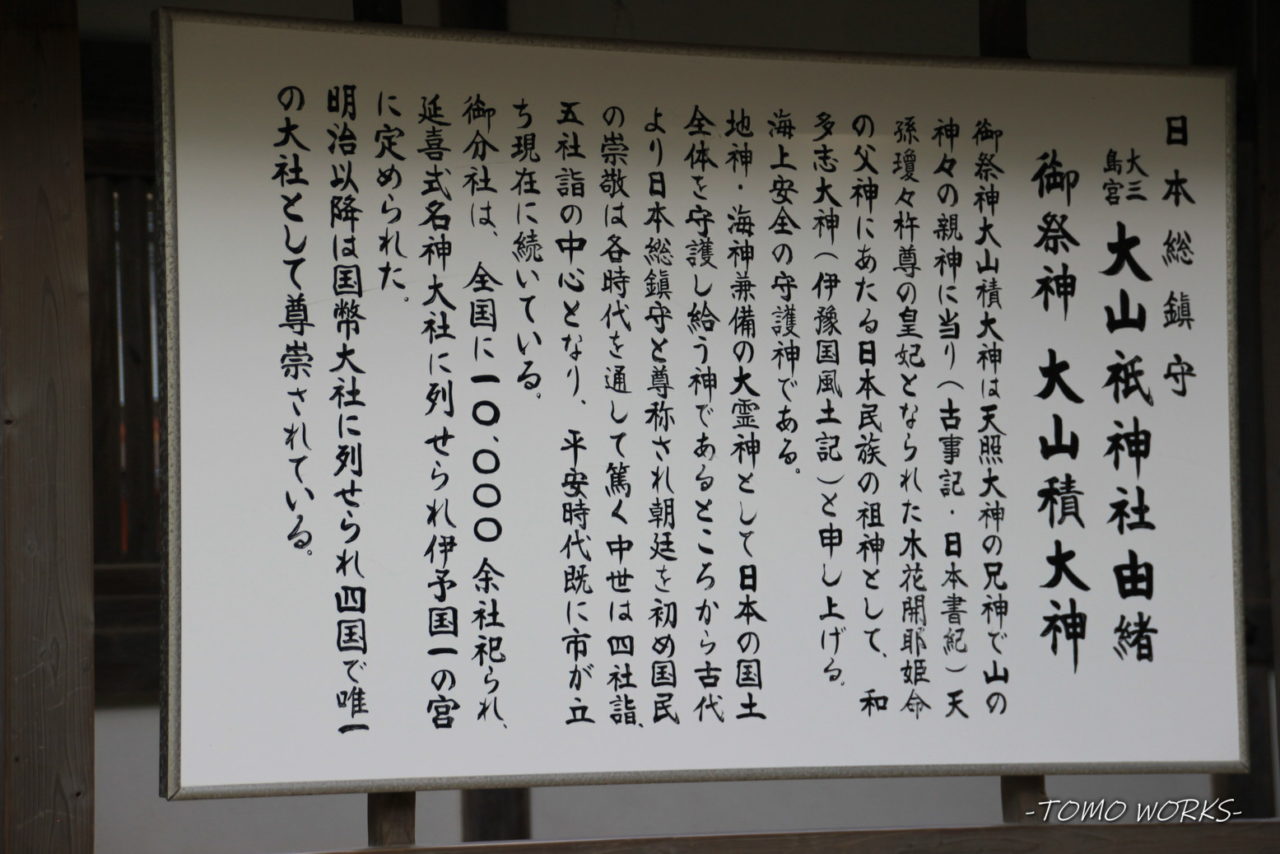 日本総鎮守
大三島宮 大山祇神社由緒
御祭神 大山積大神
御祭神大山積大神は天照大神の兄神で山の
神々の親神に当り(古事記・日本書紀)天
孫瓊々杵尊の皇妃となられた木花開耶姫命
の父神にあたる日本民族の祖神として、和
多志大神(伊豫国風土記)と申し上げる。
海上安全の守護神である。
地神・海神兼備の大霊神として日本の国土
全体を守護し給う神であるところから古代
より日本総鎮守と尊称され朝廷を初め国民
の崇敬は各時代を通して篤く中世は四社詣、
五社詣の中心となり、平安時代既に市が立
ち現在に続いている。
御分社は、全国に一〇、〇〇〇余社祀られ、
延喜式名神大社に列せられ伊予国一の宮
に定められた。
明治以降は国幣大社に列せられ四国で唯一
の大社として尊崇されている。
-TOMO WORKS-